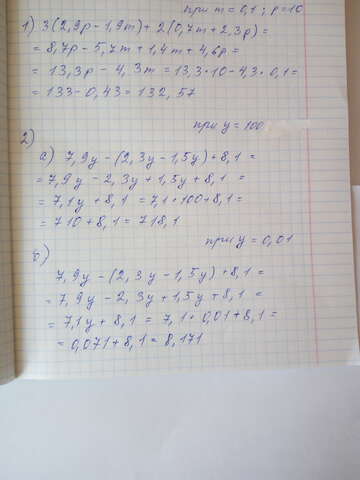 при m = 0,1 ; p = 10
1) 3(2,9p - 1,9m) + 2(0,7m + 2,3p) =
= 8,7p - 5,7m + 1,4m + 4,6p =
= 13,3p - 4,3m = 13,3 • 10 - 4,3 • 0,1 =
= 133 - 0,43 = 132,57
при y = 100
2)
а) 7,9y - (2,3y - 1,5y) + 8,1 =
= 7,9y - 2,3y + 1,5y + 8,1 =
= 7,1y + 8,1 = 7,1 • 100 + 8,1 =
= 710 + 8,1 = 718,1
при y = 0,01
б)
7,9y - (2,3y - 1,5y) + 8,1 =
= 7,9y - 2,3y + 1,5y + 8,1 =
= 7,1y + 8,1 = 7,1 • 0,01 + 8,1 =
= 0,071 + 8,1 = 8,171